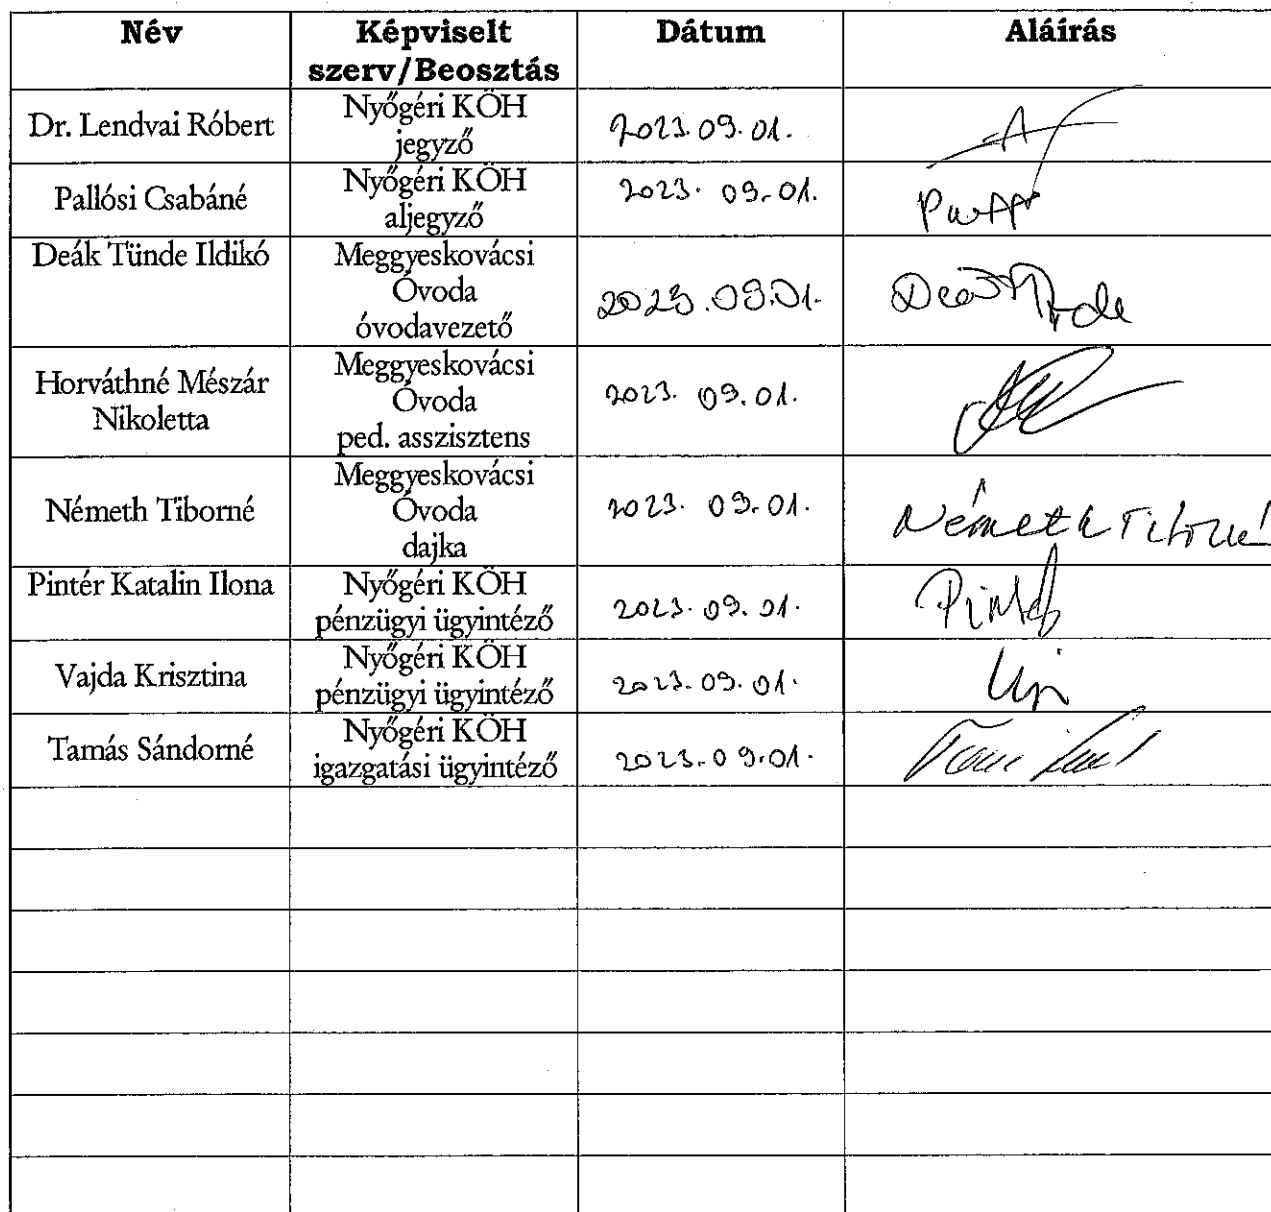 Név Képviselt szerv/Beosztás Dátum Aláírás
Dr. Lendvai Róbert Nyőgéri KÖH jegyző 2023.09.01.
Pallósi Csabáné Nyőgéri KÖH aljegyző 2023. 09.01.
Deák Tünde Ildikó Meggyeskovácsi Óvoda óvodavezető 2023.09.01. Deák Tünde
Horváthné Mészár Nikoletta Meggyeskovácsi Óvoda ped. asszisztens 2023. 09.01.
Németh Tiborné Meggyeskovácsi Óvoda dajka 2023. 09.01. Németh Tiborné
Pintér Katalin Ilona Nyőgéri KÖH pénzügyi ügyintéző 2023.09.01. Pintér
Vajda Krisztina Nyőgéri KÖH pénzügyi ügyintéző 2023.09.01.
Tamás Sándorné Nyőgéri KÖH igazgatási ügyintéző 2023.09.01.